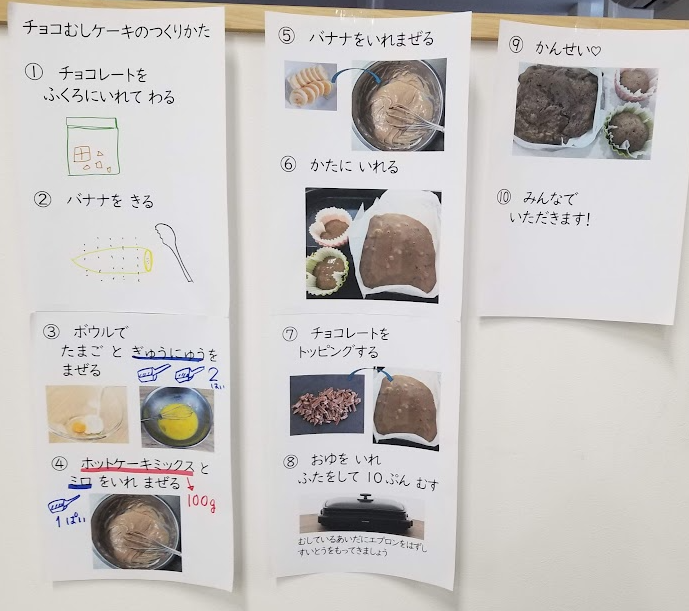 チョコむしケーキのつくりかた
① チョコレートを
ふくろにいれて わる
② バナナを きる
③ ボウルで
たまご と ぎゅうにゅうを
まぜる
2はい
④ ホットケーキミックスと
ミロ をいれ まぜる
100g
1ぱい
⑤ バナナをいれまぜる
⑥ かたに いれる
⑦ チョコレートを
トッピングする
⑧ おゆを いれ
ふたをして 10ぷん むす
むしているあいだにエプロンをはずし
すいとうをもってきましょう
⑨ かんせい♡
⑩ みんなで
いただきます!